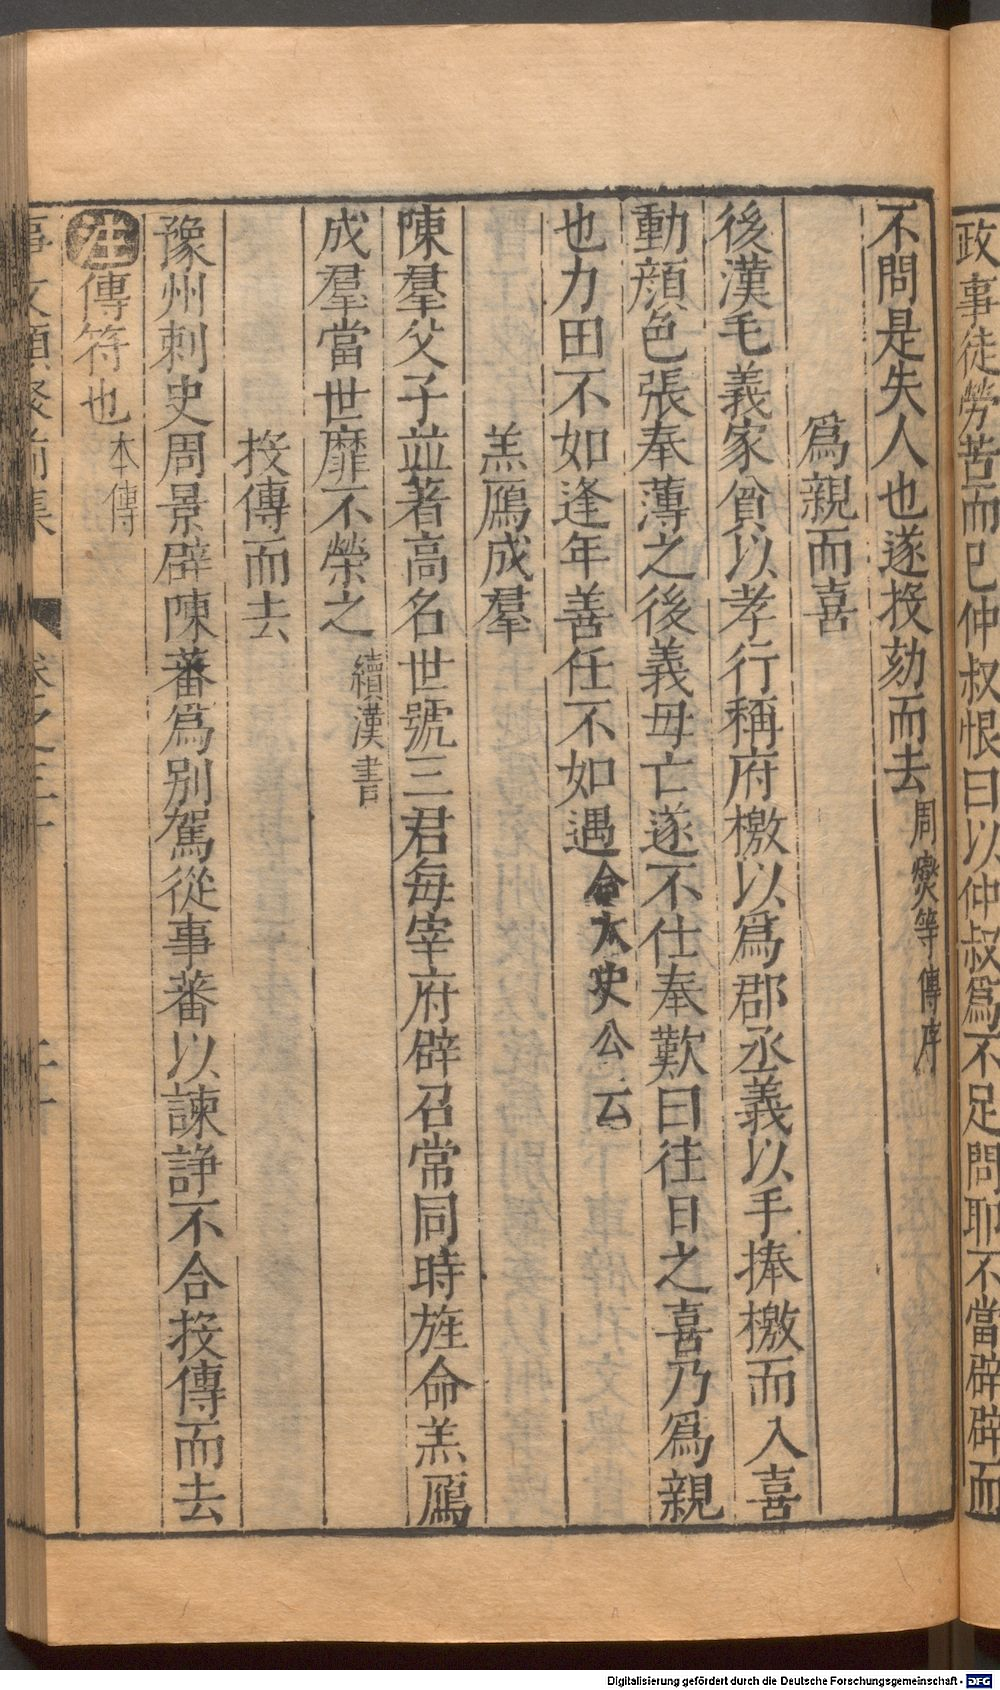 政事徒勞苦而已仲叔恨曰以仲叔爲不足問耶不當辟辟而
不問是失人也遂投劾而去周爕等傳序
爲親而喜
後漢毛義家貧以孝行稱府檄以爲郡丞義以手捧檄而入喜
動顔色張奉薄之後義母亡遂不仕奉歎曰往日之喜乃爲親
也力田不如逢年善任不如遇合太史公云
羔鴈成羣
陳羣父子並著高名世號三君每宰府辟召常同時旌命羔鴈
成羣當世靡不榮之續漢書
投傳而去
豫州刺史周景辟陳蕃爲別駕從事蕃以諫諍不合投傳而去
注傳符也本傳
事文類聚前集 卷之三十
Digitalisierung gefördert durch die Deutsche Forschungsgemeinschaft - DFG